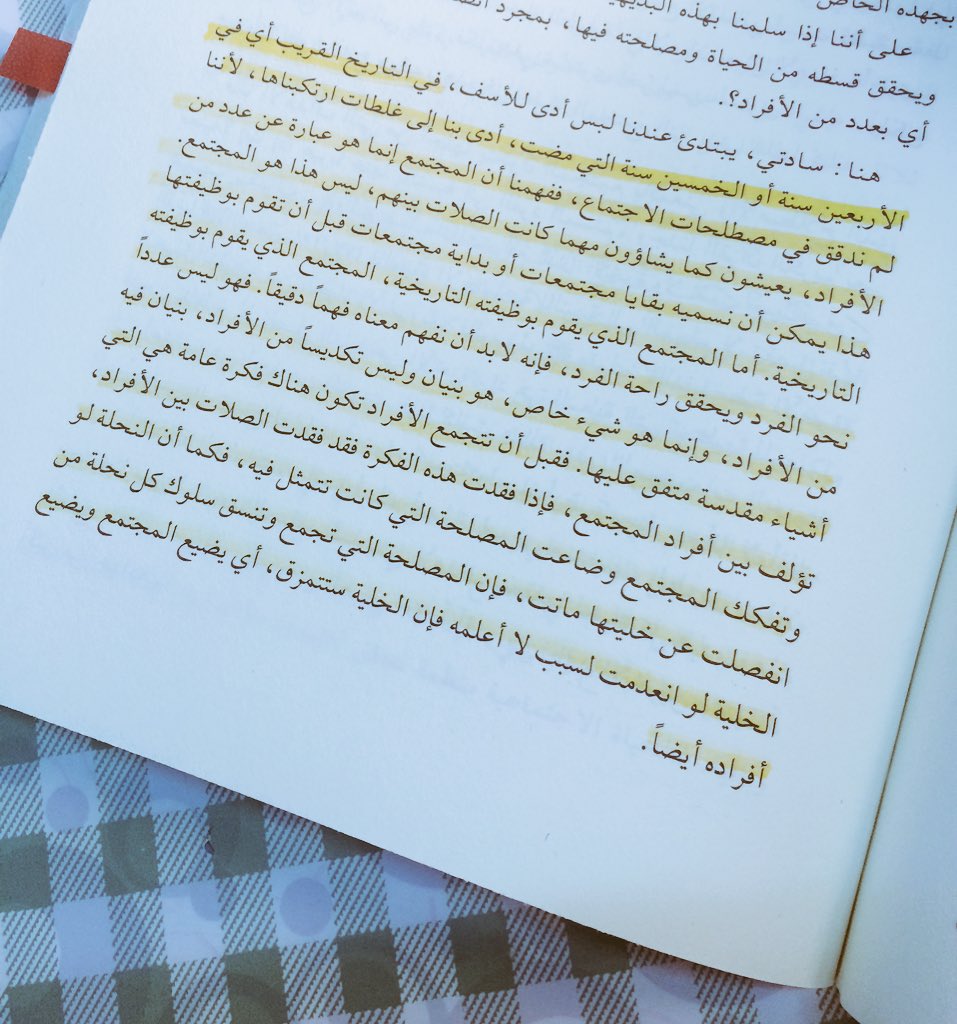 بجهده الخاص
على أننا إذا سلمنا بهذه البديهية
ويحقق قسطه من الحياة ومصلحته فيها، بمجرد
أي بعدد من الأفراد؟.
هنا: سادتي، يبتدئ عندنا لبس أدى للأسف، في التاريخ القريب أي في
الأربعين سنة أو الخمسين سنة التي مضت، أدى بنا إلى غلطات ارتكبناها، لأننا
لم ندقق في مصطلحات الاجتماع، ففهمنا أن المجتمع إنما هو عبارة عن عدد من
الأفراد، يعيشون كما يشاؤون مهما كانت الصلات بينهم، ليس هذا هو المجتمع.
هذا يمكن أن نسميه بقايا مجتمعات أو بداية مجتمعات قبل أن تقوم بوظيفتها
التاريخية. أما المجتمع الذي يقوم بوظيفته التاريخية، المجتمع الذي يقوم بوظيفته
نحو الفرد ويحقق راحة الفرد، فإنه لا بد أن نفهم معناه فهماً دقيقاً. فهو ليس عدداً
من الأفراد، وإنما هو شيء خاص، هو بنيان وليس تكديساً من الأفراد، بنيان فيه
أشياء مقدسة متفق عليها. فقبل أن تتجمع الأفراد تكون هناك فكرة عامة هي التي
تؤلف بين أفراد المجتمع، فإذا فقدت هذه الفكرة فقد فقدت الصلات بين الأفراد،
وتفكك المجتمع وضاعت المصلحة التي كانت تتمثل فيه، فكما أن النحلة لو
انفصلت عن خليتها ماتت، فإن المصلحة التي تجمع وتنسق سلوك كل نحلة من
الخلية لو انعدمت لسبب لا أعلمه فإن الخلية ستتمزق، أي يضيع المجتمع ويضيع
أفراده أيضاً.